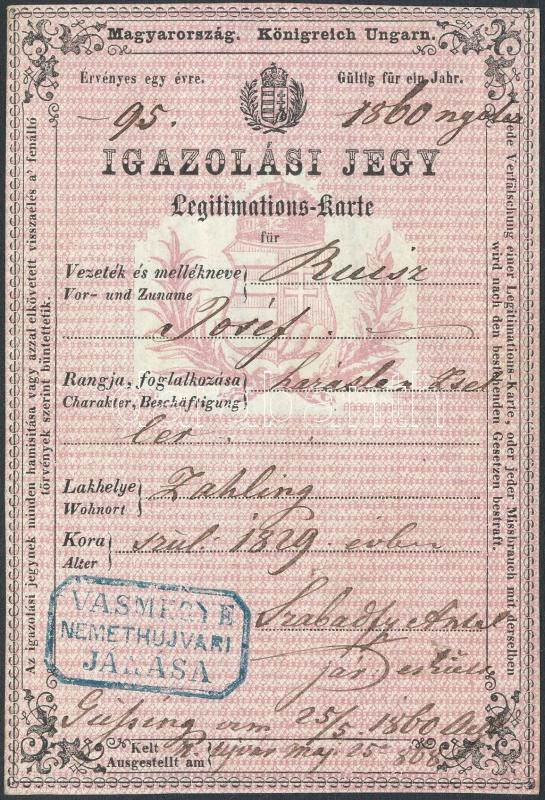 Magyarország. Königreich Ungarn.
Érvényes egy évre. Gültig für ein Jahr.
95. 1860
IGAZOLÁSI JEGY
Legitimations-Karte
für
Vezeték és mellékneve
Vor- und Zuname
Ruisz
Josef
Rangja, foglalkozása
Charakter, Beschäftigung
Lakhelye
Wohnort
Zahling
Kora
Alter
szul: 1829 évben
VASMEGYE
NEMETHUJVÁRI
JÁRÁSA
Szabadfy Antal
Güssing 25/5. 1860
Kelt
Ausgestellt am
N. Ujvár maj 25
Az igazolási jegynek minden hamisitása vagy azzal elkövetett visszaélés a' fenálló
törvények szerint büntettetik.
Jede Verfälschung einer Legitimations-Karte, oder jeder Missbrauch mit derselben
wird nach den bestehenden Gesetzen bestraft.